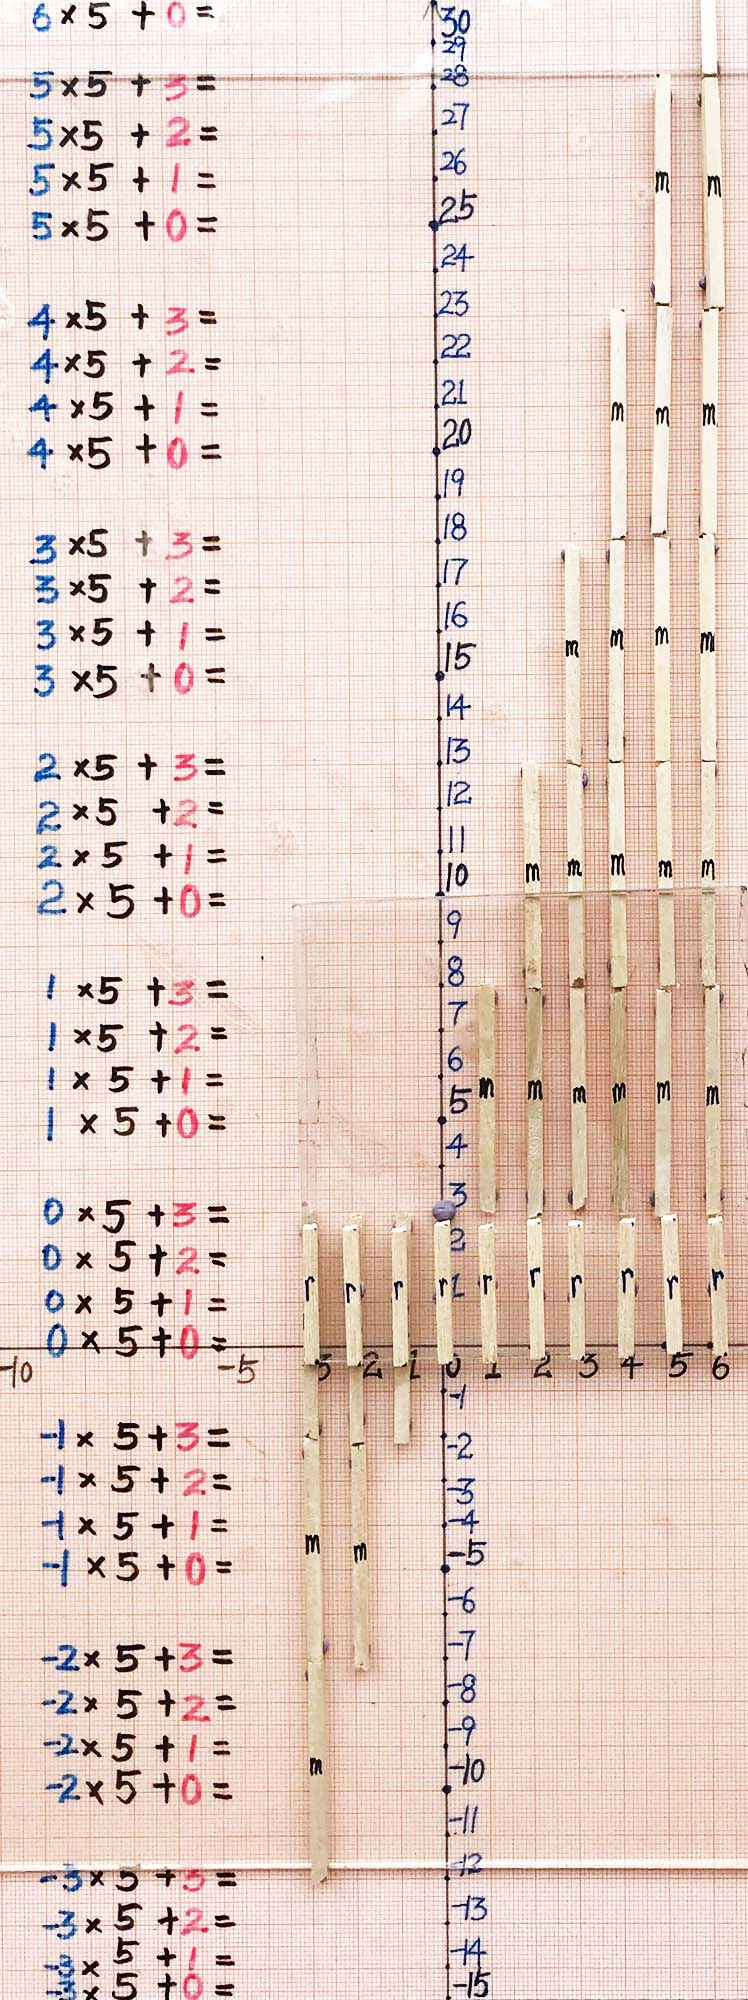 6 × 5 + 0 =
5 × 5 + 3 =
5 × 5 + 2 =
5 × 5 + 1 =
5 × 5 + 0 =
4 × 5 + 3 =
4 × 5 + 2 =
4 × 5 + 1 =
4 × 5 + 0 =
3 × 5 + 3 =
3 × 5 + 2 =
3 × 5 + 1 =
3 × 5 + 0 =
2 × 5 + 3 =
2 × 5 + 2 =
2 × 5 + 1 =
2 × 5 + 0 =
1 × 5 + 3 =
1 × 5 + 2 =
1 × 5 + 1 =
1 × 5 + 0 =
0 × 5 + 3 =
0 × 5 + 2 =
0 × 5 + 1 =
0 × 5 + 0 =
-1 × 5 + 3 =
-1 × 5 + 2 =
-1 × 5 + 1 =
-1 × 5 + 0 =
-2 × 5 + 3 =
-2 × 5 + 2 =
-2 × 5 + 1 =
-2 × 5 + 0 =
-3 × 5 + 3 =
-3 × 5 + 2 =
-3 × 5 + 1 =
-3 × 5 + 0 =
30
29
28
27
26
25
24
23
22
21
20
19
18
17
16
15
14
13
12
11
10
9
8
7
6
5
4
3
2
1
-1
-2
-3
-4
-5
-6
-7
-8
-9
-10
-11
-12
-13
-14
-15
m m
m m m
m m m m
m m m m m
m m m m m m
r r r r r r r r r r
-10 -5 3 2 1 0 1 2 3 4 5 6
m m
m